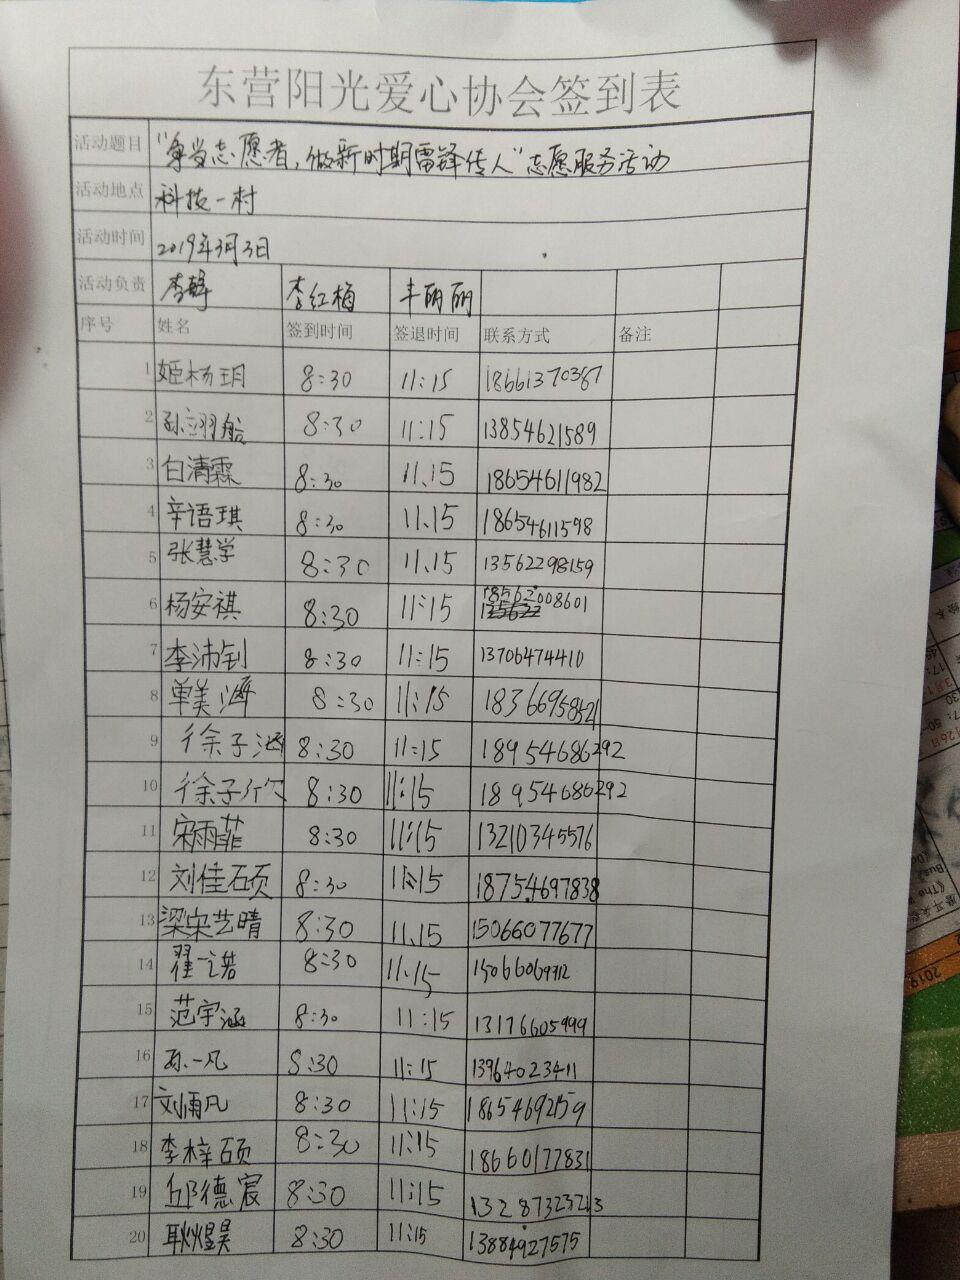 东营阳光爱心协会签到表
活动题目 "争当志愿者，做新时期雷锋传人"志愿服务活动
活动地点 科技一村
活动时间 2019年3月3日
活动负责 李静 李红梅 丰丽丽
序号 姓名 签到时间 签退时间 联系方式 备注
1 姬杨玥 8:30 11:15 18661370367
2 孙翊船 8:30 11:15 13854621589
3 白清霖 8:30 11.15 18654611982
4 辛语琪 8:30 11.15 18654611598
5 张慧学 8:30 11.15 13562298159
6 杨安祺 8:30 11:15 18562008601
7 李沛钊 8:30 11:15 13706474410
8 单美海 8:30 11:15 18366958521
9 徐子涵 8:30 11:15 18954686292
10 徐子欣 8:30 11:15 18954686292
11 宋雨菲 8:30 11:15 13210345576
12 刘佳硕 8:30 11:15 18754697838
13 梁宋艺晴 8:30 11.15 15066077677
14 翟一诺 8:30 11.15 15066069712
15 范宇涵 8:30 11:15 13176605999
16 孙一凡 8:30 11:15 13964023411
17 刘雨凡 8:30 11:15 18654692159
18 李梓硕 8:30 11:15 18660177831
19 邱德宸 8:30 11:15 13287323213
20 耿煜昊 8:30 11:15 13884927575
2019